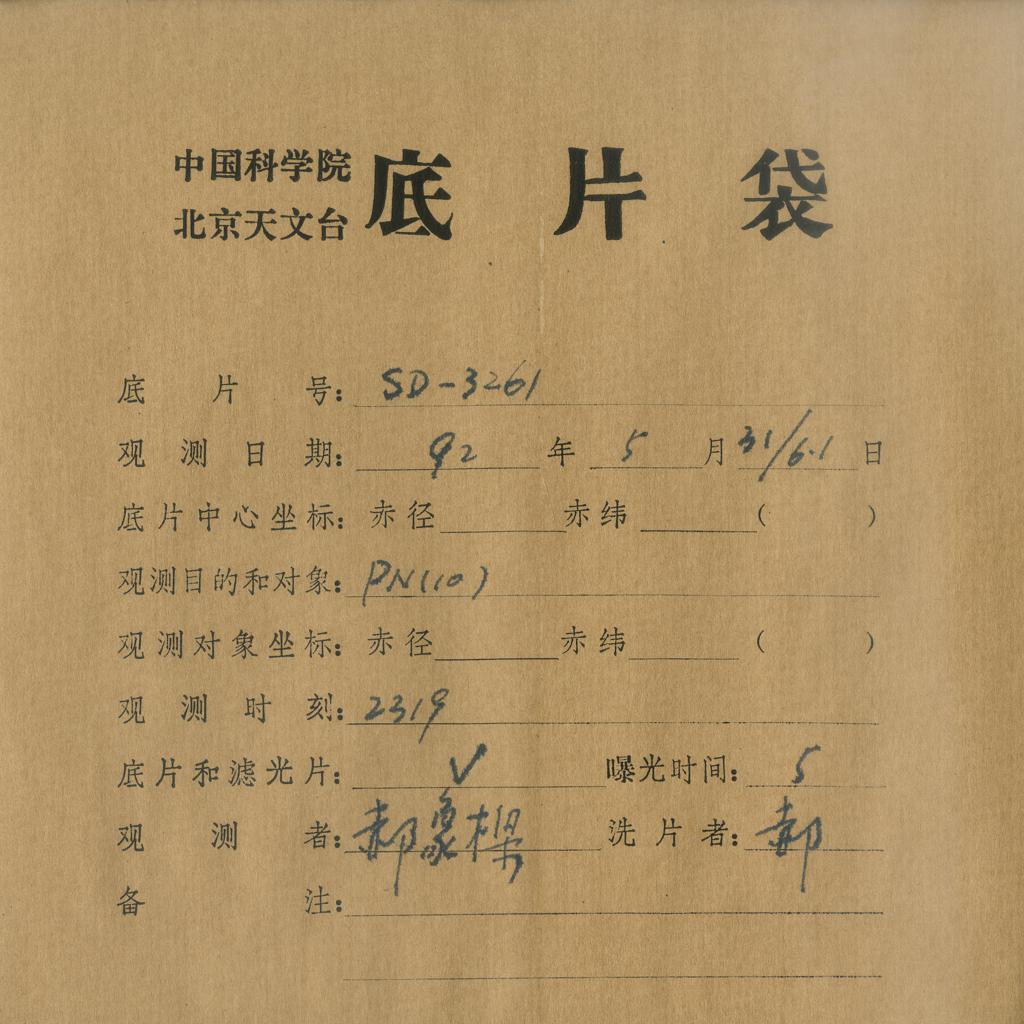 中国科学院
北京天文台
底片袋
底片号：SD-3261
观测日期：92年5月31/6.1日
底片中心坐标：赤径 赤纬 ( )
观测目的和对象：PN(10)
观测对象坐标：赤径 赤纬 ( )
观测时刻：2319
底片和滤光片：V 曝光时间：5
观测者：郝象樑 洗片者：郝
备注：